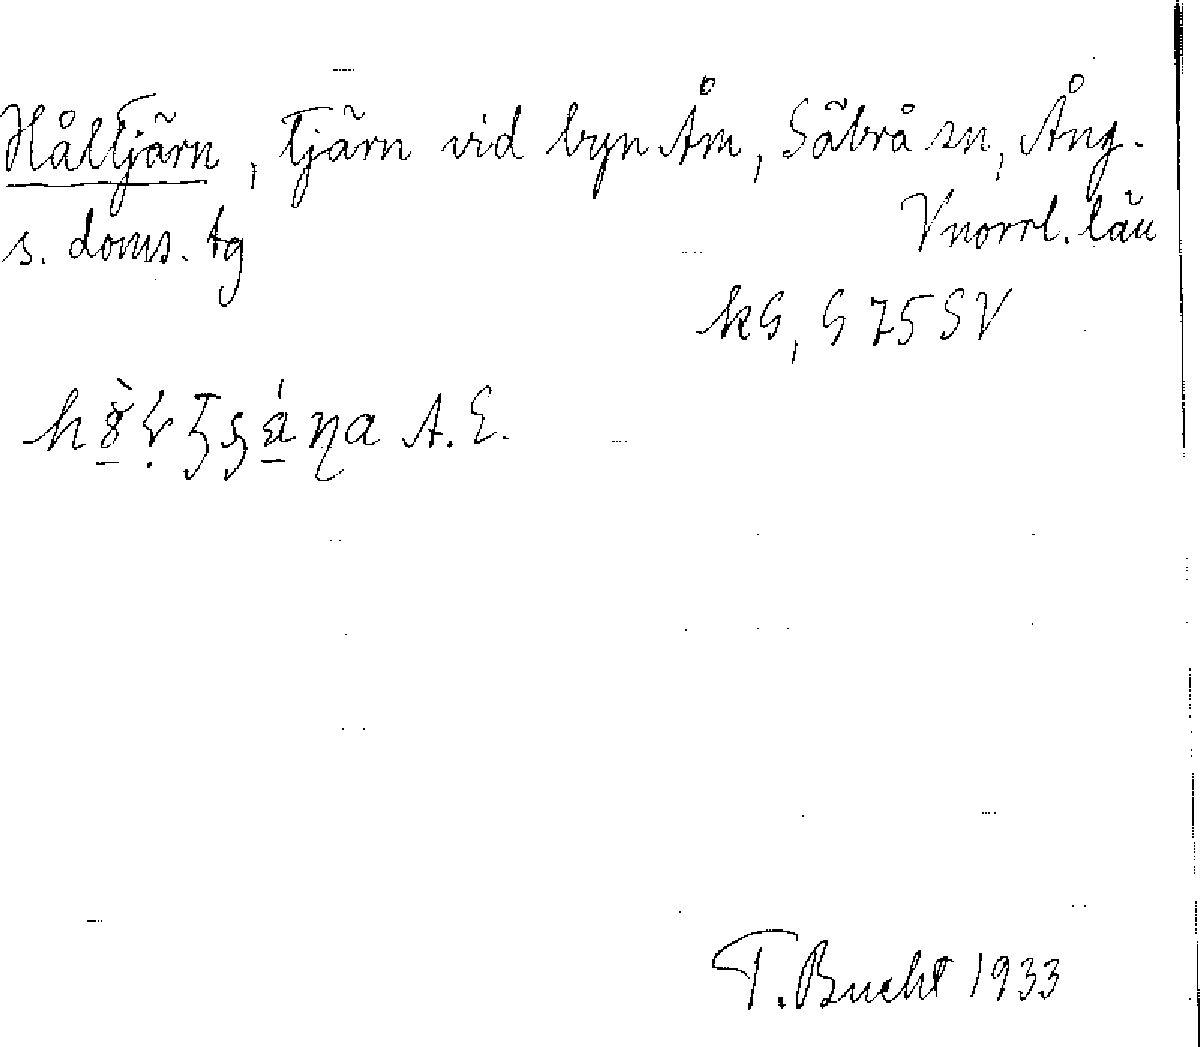 Håltjärn, tjärn vid byn Åm, Säbrå sn, Ång.
s. doms. tg Vnorrl. län
kG, G 75 SV
A. E.
T. Bucht 1933